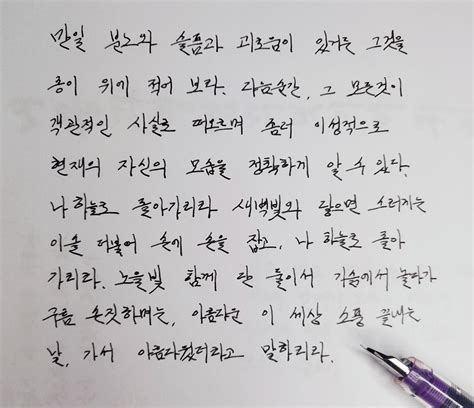 만일 분노와 슬픔과 괴로움이 있거든 그것을
종이 위에 적어 보라. 다음순간, 그 모든것이
객관적인 사실로 떠오르며 좀더 이성적으로
현재의 자신의 모습을 정확하게 알 수 있다.
나 하늘로 돌아가리라 새벽빛와 닿으면 스러지는
이슬 더불어 손에 손을 잡고, 나 하늘로 돌아
가리라. 노을빛 함께 단 둘이서 기슭에서 놀다가
구름 손짓하며는, 아름다운 이 세상 소풍 끝내는
날, 가서 아름다웠더라고 말하리라.